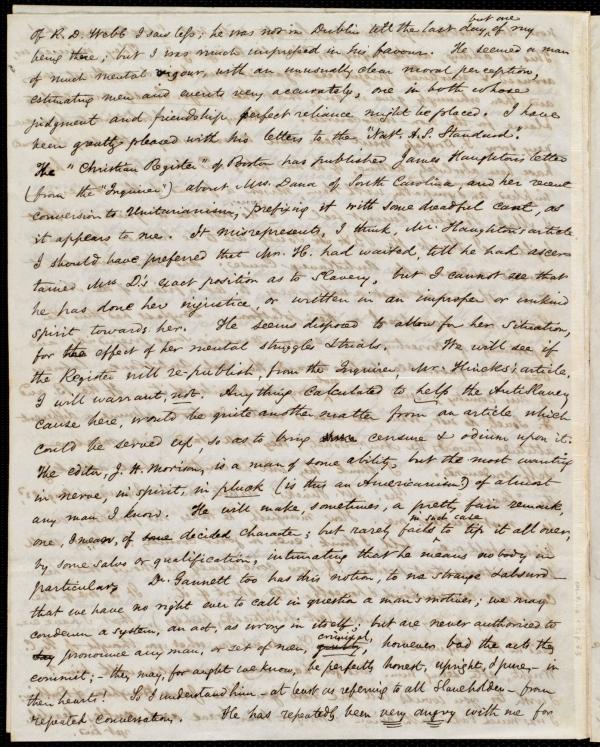 but one
Of R. D. Webb I saw less; he was not in Dublin till the last day, of my
being there; but I was much impressed in his favour. He seemed a man
of much mental vigour, with an unusually clear moral perception,
estimating men and events very accurately, one in both whose
judgment and friendship perfect reliance might be placed. I have
been greatly pleased with his letters to the "Nat. A. S. Standard".
The "Christian Register" of Boston has published James Haughton's letter
(from the "Inquirer") about Mrs. Dana of South Carolina, and her recent
conversion to Unitarianism, prefixing it with some dreadful cant, as
it appears to me. It misrepresents, I think, Mr. Haughton's article
I should have preferred that Mr. H. had waited, till he had ascer-
tained Mrs D's exact position as to Slavery, but I cannot see that
he has done her injustice, or written in an improper or unkind
spirit towards her. He seems disposed to allow for her situation,
for the effect of her mental struggles & trials. We will see if
the Register will re-publish, from the Inquirer, Mr. Hincks's article.
I will warrant, not. Anything calculated to help the AntiSlavery
cause here, would be quite another matter from an article which
could be served up, so as to bring censure & odium upon it.
The editor, J. H. Morison, is a man of some ability, but the most wanting
in nerve, in spirit, in pluck (is this an Americanism?) of almost
any man I know. He will make, sometimes, a pretty fair remark,
one, I mean, of some decided character; but rarely fails in such case to tip it all over,
by some salvo or qualification, intimating that he means nobody in
particular. Dr. Gannett too has this notion, to me strange & absurd -
that we have no right ever to call in question a man's motives; we may
condemn a system, an act, as wrong in itself; but are never authorized to
pronounce any man, or set of men, criminal, however bad the acts they
commit; - they may, for aught we know, be perfectly honest, upright, & pure, - in
their hearts! So I understand him - at least as referring to all Slaveholders - from
repeated conversations. He has repeatedly been very angry with me for